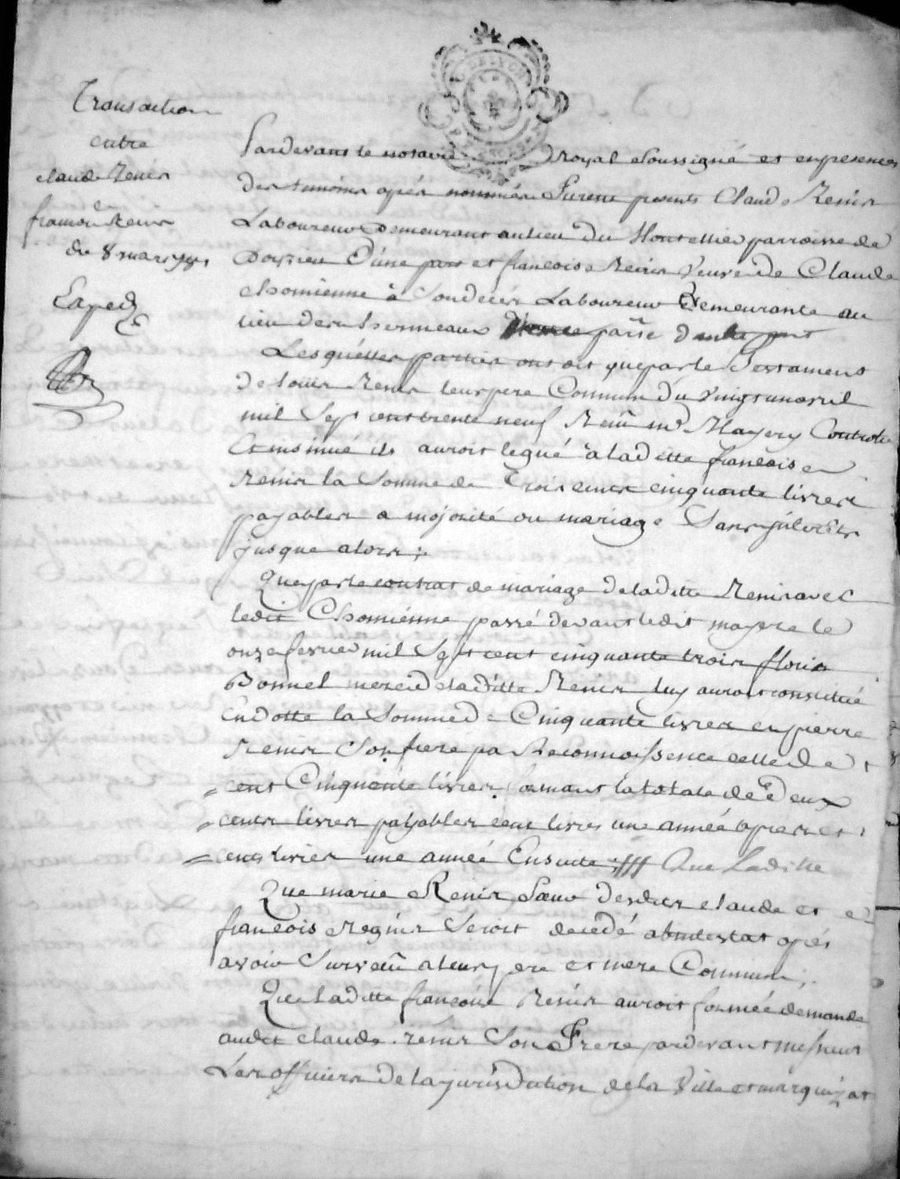 Transaction
entre
claude Renir
françoise Renir
du 8 mars
Exped
Pardevant le notaire royal soussigné et en presences
des temoins apres nommés furent presents Claude Renir
Laboureur demeurant au lieu du Montellier parroisse de
Doizieu d'une part et françoise Renir veuve de Claude
Chomienne à son decés Laboureur demeurante au
lieu des hormeaux parse d'autre part
Lesquelles parties ont dit que par le Testament
de louis Renir leur pere Commun du vingt un avril
mil sept cent trente neuf Reçu me Mayery Controlé
Et insinué ils auroit legué à laditte françoise
Renir la Somme de Trois cents cinquante livres
payables a majorité ou mariage Sans jnterets
jusque alors;
Que par le contrat de mariage de laditte Renir avec
ledit Chomienne passé devant ledit mayery le
onze fevrier mil Sept cent cinquante trois florie
Bonnel mere de laditte Renir luy auroit constitué
En dotte la Somme de Cinquante livres et pierre
Renir Son frere par Reconnoissence celle de
cent Cinquente livres formant la totale de Deux
cents livres payables cent livres une année apres et
cents livres une année Ensuite Que Laditte
Que marie Renir Sœur desdits claude et
françoise Regnir Seroit decedé abintestat apres
avoir Survecu a leur pere et mere Commun;
Que laditte françoise Renir auroit formée demande
audit claude renir Son Frere pardevant messieurs
Les officiers de la jurisdiction de la Ville et marquizat